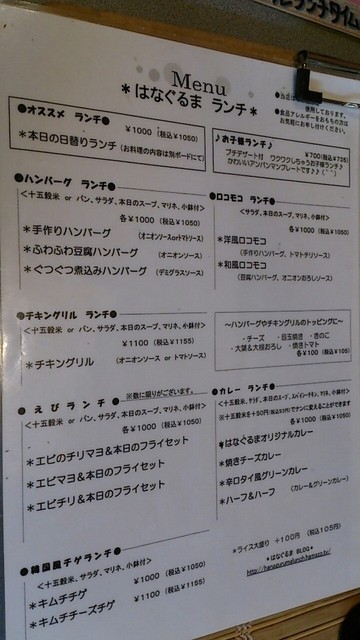 ランチタイム
Menu
*はなぐるま ランチ*
使用しております。
●食品アレルギーをおもちの方は
お気軽にお申し付けください。
●オススメ ランチ●
¥1000 (税込¥1050)
*本日の日替りランチ (お料理の内容は別ボードにて)
♪お子様ランチ♪
¥700(税込¥735)
プチデザート付 ワクワクしちゃうお子様ランチ♪
かわいいアンパンマンプレートです♪♪(^^)
●ハンバーグ ランチ●
<十五穀米 or パン、サラダ、本日のスープ、マリネ、小鉢付>
各¥1000 (税込¥1050)
*手作りハンバーグ (オニオンソースorトマトソース)
*ふわふわ豆腐ハンバーグ (オニオンソース)
*ぐつぐつ煮込みハンバーグ (デミグラスソース)
●ロコモコ ランチ●
<サラダ、本日のスープ、マリネ、小鉢付>
各¥1000 (税込¥1050)
*洋風ロコモコ
(手作りハンバーグ、トマトチリソース)
*和風ロコモコ
(豆腐ハンバーグ、オニオンおろしソース)
●チキングリル ランチ●
<十五穀米 or パン、サラダ、本日のスープ、マリネ、小鉢付>
¥1100 (税込¥1155)
*チキングリル (オニオンソース or トマトソース)
~ハンバーグやチキングリルのトッピングに~
・チーズ ・目玉焼き ・きのこ
・大葉&大根おろし ・焼きトマト
各¥100 (税込¥105)
※数に限りがございます。
●えびランチ●
<十五穀米 or パン、サラダ、本日のスープ、マリネ、小鉢付>
各¥1000 (税込¥1050)
*エビのチリマヨ&本日のフライセット
*エビマヨ&本日のフライセット
*エビチリ&本日のフライセット
●カレー ランチ●
<十五穀米、サラダ、本日のスープ、スパイシーチキン、マリネ、小鉢付>
※十五穀米を+50円(税込53円)でナンに変えることができます
各¥1000 (税込¥1050)
*はなぐるまオリジナルカレー
*焼きチーズカレー
*辛口タイ風グリーンカレー
*ハーフ&ハーフ (カレー&グリーンカレー)
●韓国風チゲランチ●
<十五穀米、サラダ、マリネ、小鉢付>
*キムチチゲ ¥1000 (税込¥1050)
*キムチチーズチゲ ¥1100 (税込¥1155)
*ライス大盛り +100円 (税込105円)
*はなぐるま BLOG*